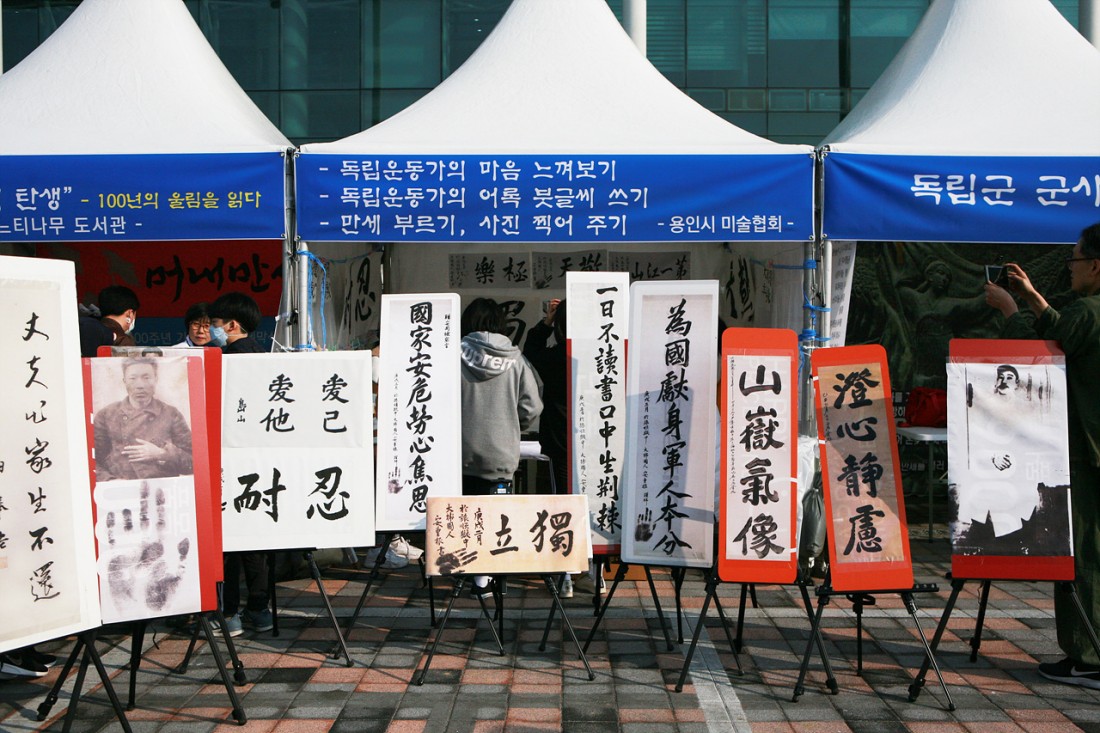 탄생" - 100년의 울림을 읽다
느티나무 도서관 -
- 독립운동가의 마음 느껴보기
- 독립운동가의 어록 붓글씨 쓰기
- 만세 부르기, 사진 찍어 주기 - 용인시 미술협회 -
독립군 군사
머내만세
樂極
第一江山
忍
丈夫出家生不還
愛己
愛他
島山
忍耐
國家安危勞心焦思
一日不讀書口中生荊棘
爲國獻身軍人本分
山嶽氣像
澄心靜慮
獨立
庚戌
大韓國人
安重根書